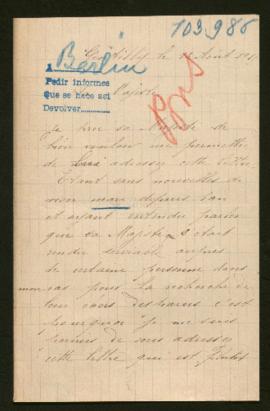 103.986
Berlin
A
Pedir informes
Que se hace aci
Devolver
Gentilly le
Majesté
Je prie sa Majesté de
bien vouloir me permettre
de lui adresser cette lettre
Etant sans nouvelles de
mon mari depuis l'an
et ayant entendu parler
que sa Majesté s'était
rendu serviable auprès
de certaine personne dans
mon cas pour la recherche de
leur chers disparus c'est
pourquoi je me suis
permis de vous adresser
cette lettre qui est